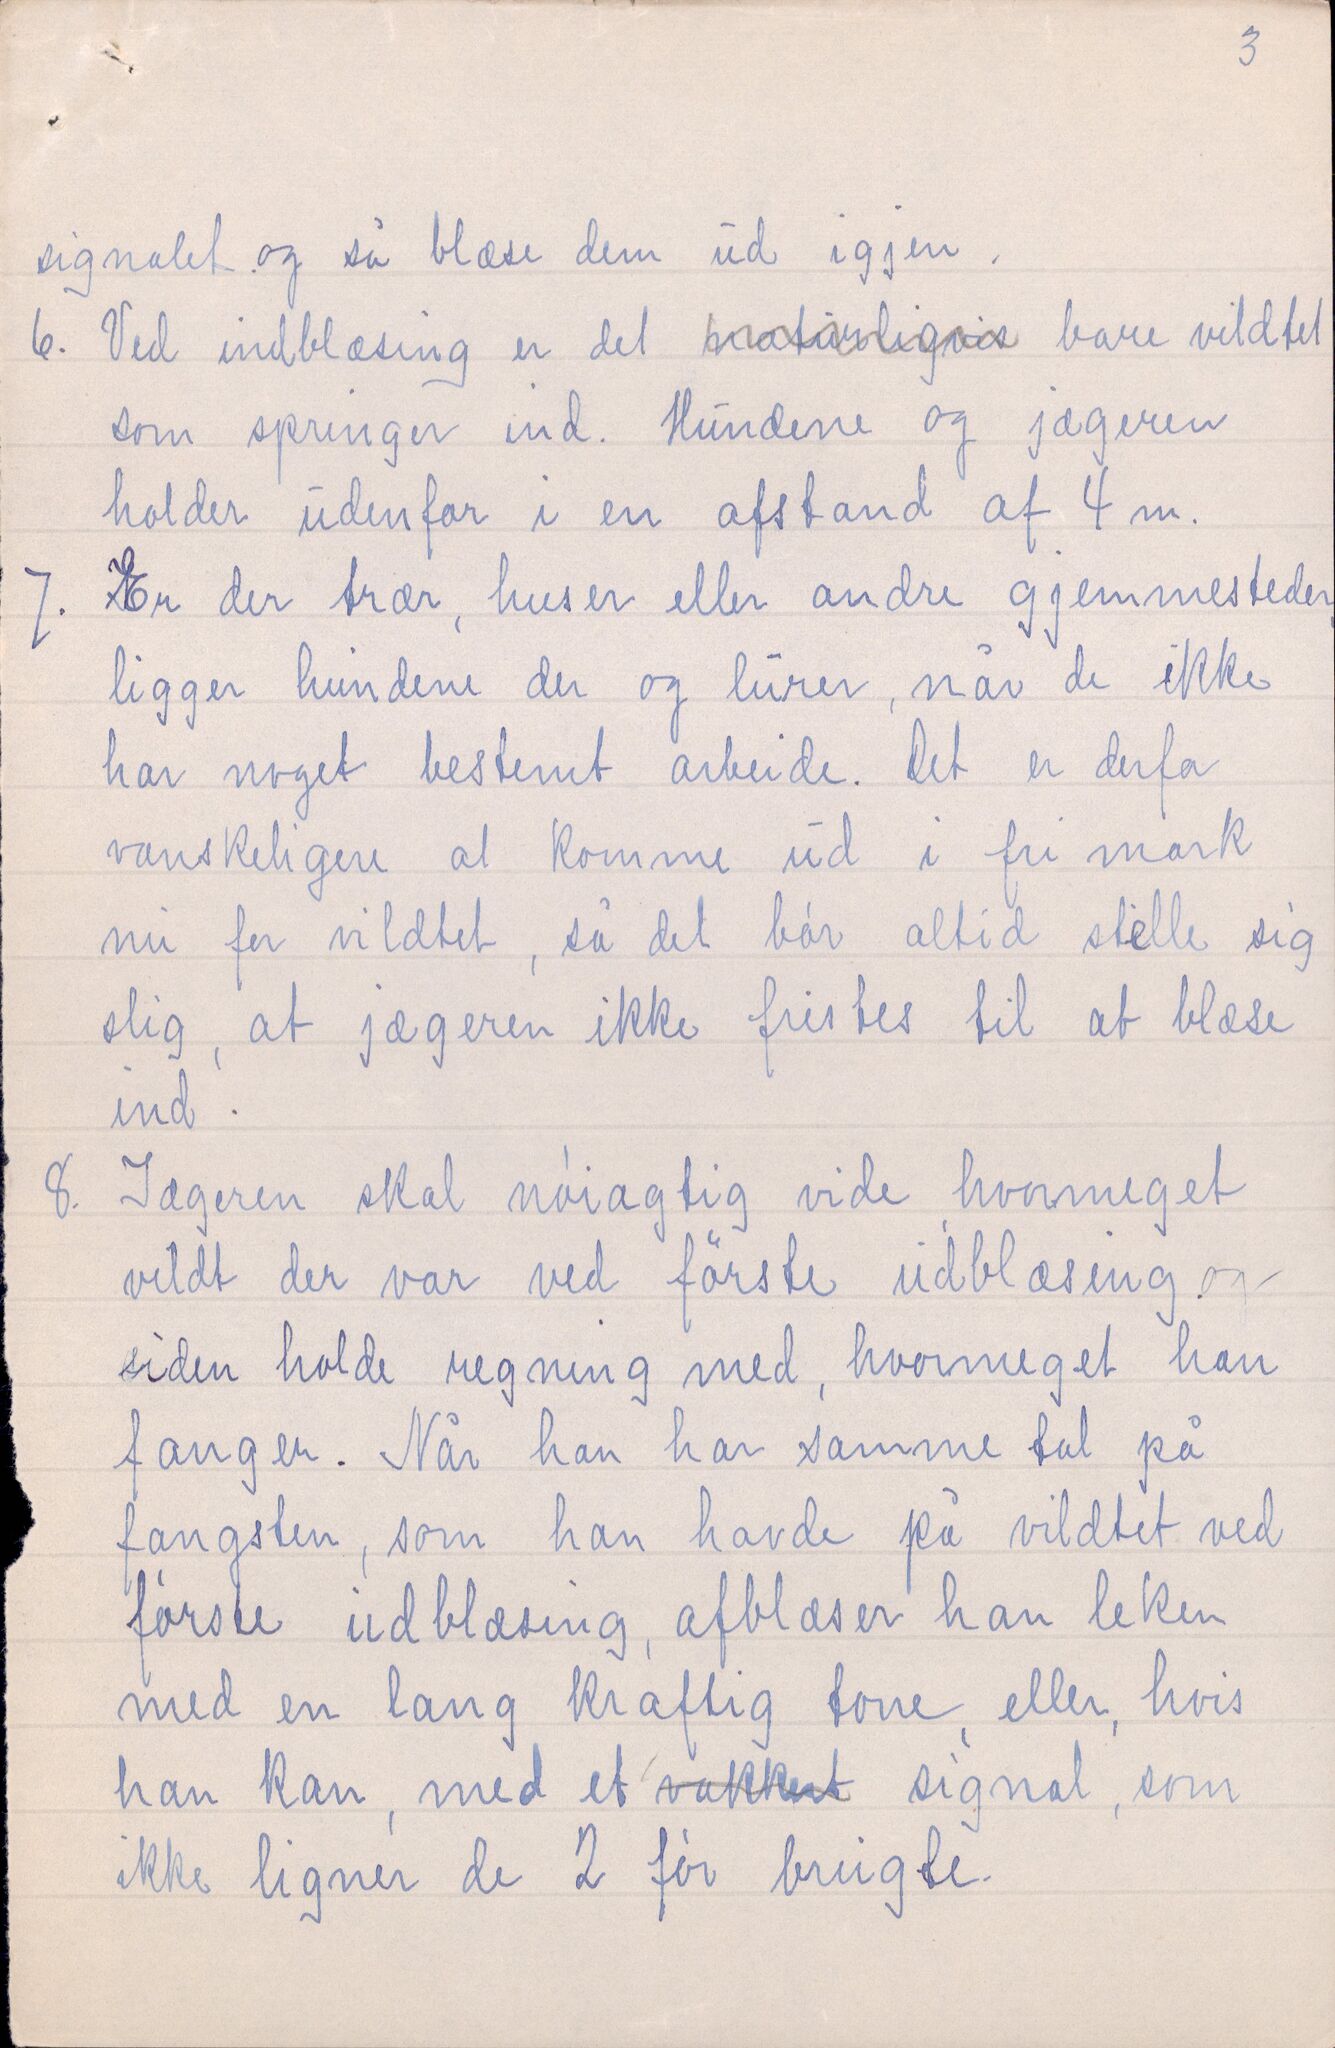 3
signalet og så blæse dem ud igjen.
6. Ved indblæsing er det naturligvis bare vildtet
som springer ind. Hundene og jægeren
holder udenfor i en afstand af 4 m.
7. Er der trær, huser eller andre gjemmesteder,
ligger hundene der og lurer, når de ikke
har noget bestemt arbeide. Det er derfor
vanskeligere at komme ud i fri mark
nu for vildtet, så det bør altid stille sig
slig, at jægeren ikke fristes til at blæse
ind.
8. Jægeren skal nøiagtig vide, hvormeget
vildt der var ved förste udblæsing og
siden holde regning med, hvormeget han
fanger. Når han har samme tal på
fangsten, som han havde på vildtet ved
første udblæsing, afblæser han leken
med en lang kraftig tone, eller, hvis
han kan, med et vakkert signal, som
ikke ligner de 2 før brugte.